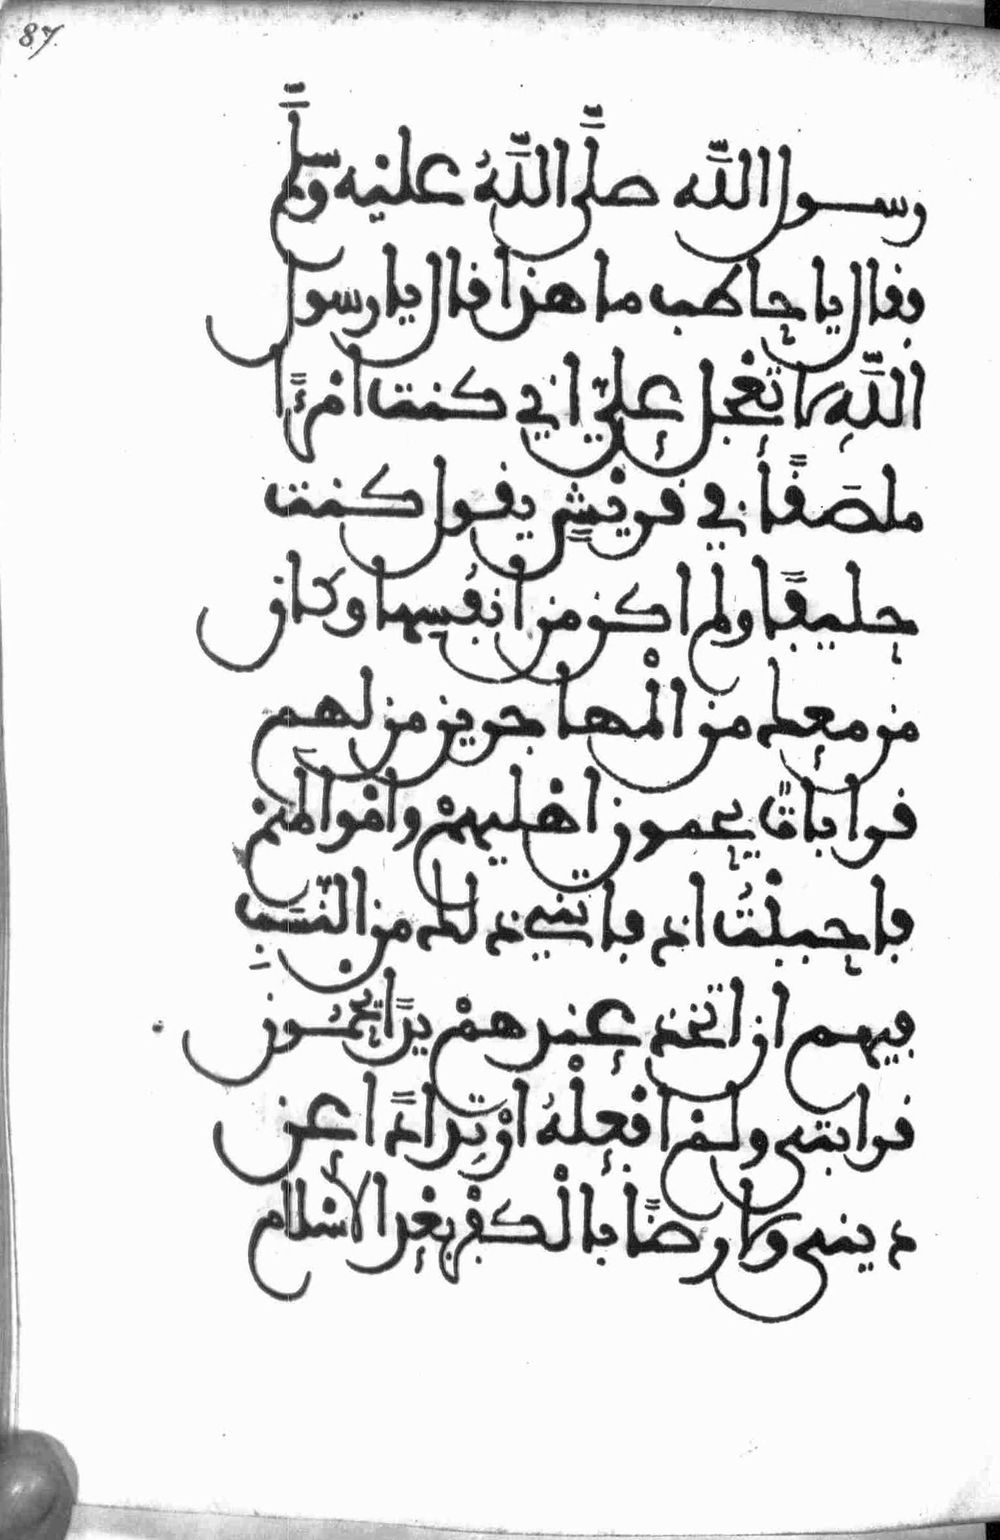 87
رسول الله صلَّى اللَّهُ عليه وسلَّم
فقال يا حاطب ما هذا قال يا رسول
اللَّهِ لا تعجل علي اني كنت امرًءا
ملصقًا في قريشٍ يقول كنت
حليفًا ولم اكن من انفُسِها وكان
من معك من الْمهاجرين من لهم
قراباتً يحمون اهْليهمْ واموالهم
فاحببْتُ اذ فاتني ذلك من النَّسَبِ
فيهم ان اتخذ عندهمْ يدًا يحمُون
قرابتي ولم افعلْهُ اوْتِدادً اعن
ديني ولا رضًا بالْكفْر بعْد الاسْلام